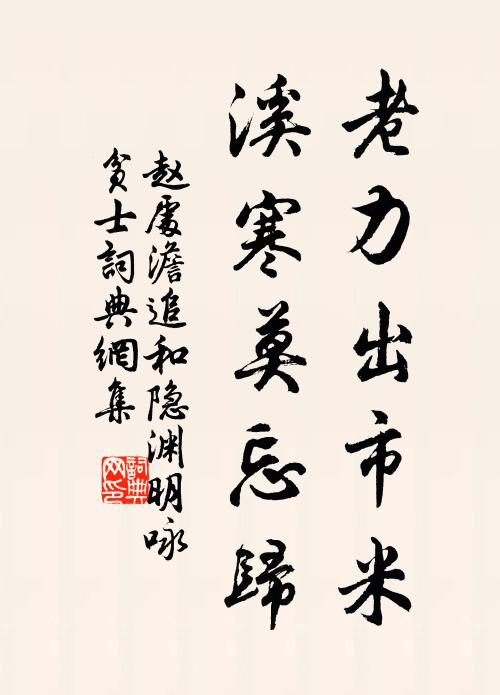 老力出市米
溪寒莫忘歸
赵處澹追和隐渊明咏
貧士詞典網集
詞典網印